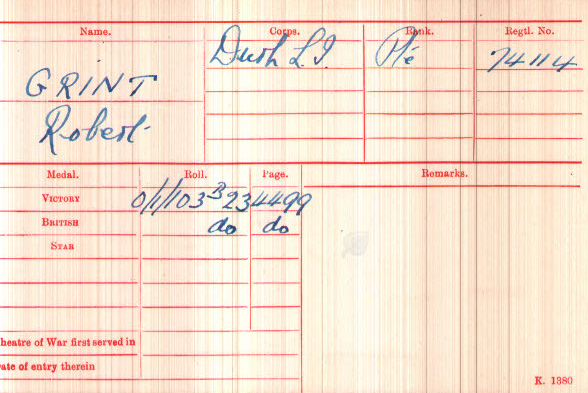 Name. Corps. Rank. Regtl. No.
GRINT Durh L.I. Pte 74114
Robert
Medal. Roll. Page. Remarks.
VICTORY 0/1/103 B23 4499
BRITISH do do
STAR
heatre of War first served in
ate of entry therein
K. 1380